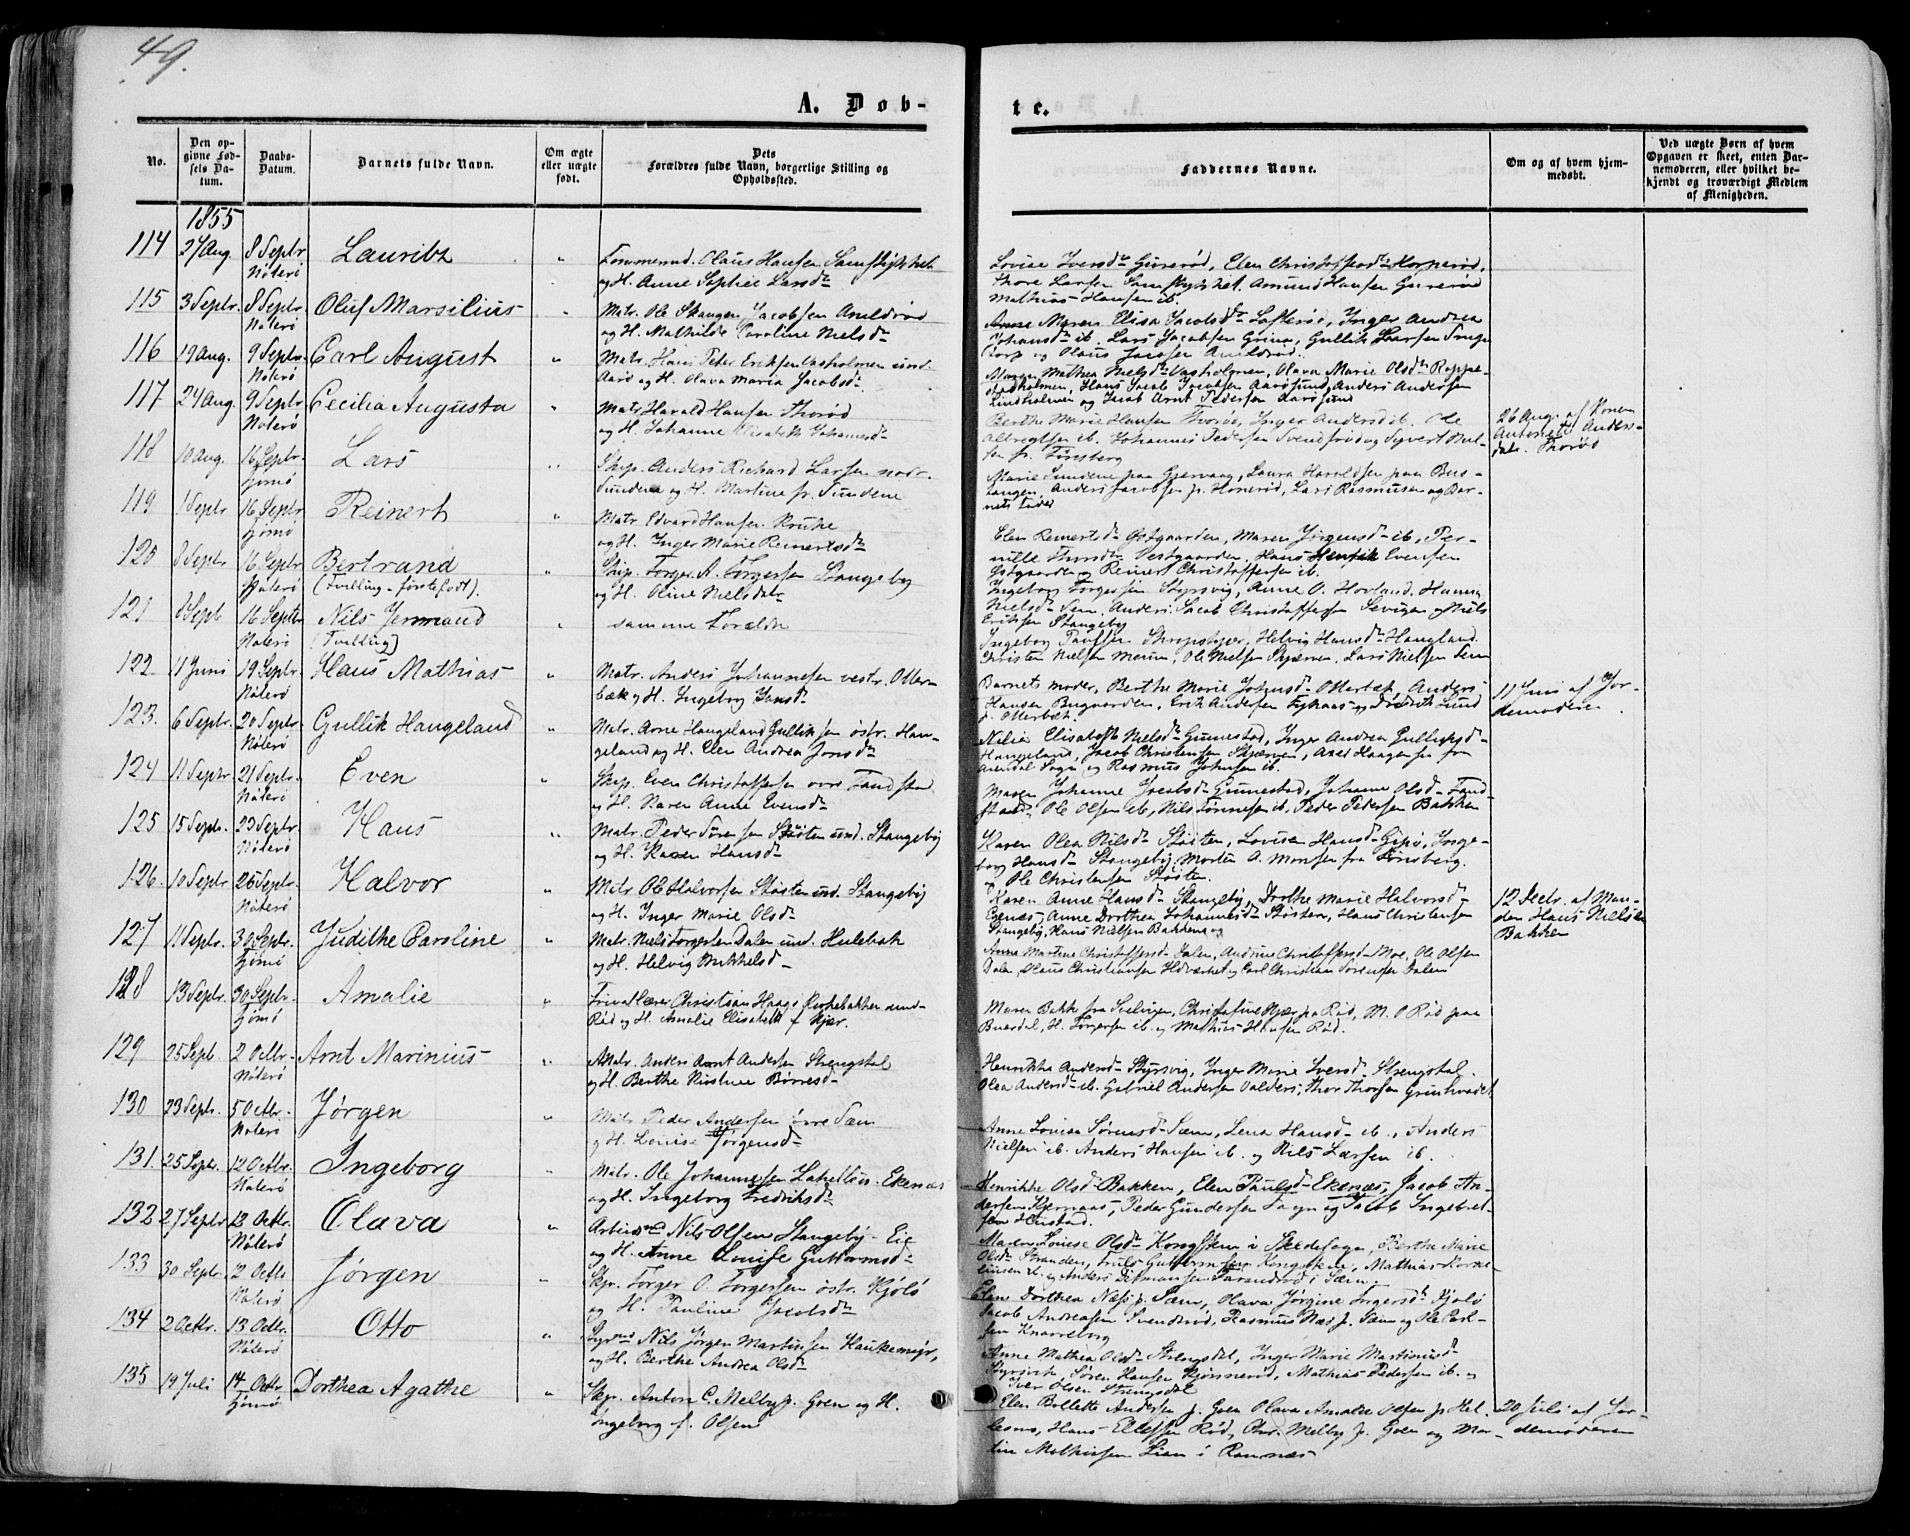 49.
A. Døb-
te.
No.
Den opgivne Fødsels Datum.
Daabs-Datum.
Barnets fulde Navn.
Om ægte eller uægte født.
Dets Forældres fulde Navn, borgerlige Stilling og Opholdssted.
Faddernes Navne.
Om og af hvem hjemmedøbt.
Ved uægte Børn af hvem Opgaven er skeet, enten Barnemoderen, eller hvilket bekjendt og troværdigt Medlem af Menigheden.
1855
114 27 Aug. 8 Septr Nøterø Lauritz " Claus Hansen
og H. Anne Sophie Larsd.
Thore Larsen Amund Hansen
Mathias Hansen ib.
115 3 Septr. 8 Septr. Nøterø Oluf Marsilius " Matr. Ole Skaugen Jacobsen
og H. Mathilde Caroline Nielsd.
Anne Maren Elisa Jacobsd. Inger Andrea
Johansd. ib. Lars Jacobsen Grina, Gullik Larsen
116 19 Aug. 9 Septr. Nøterø Carl August " Matr. Hans Peder Eriksen Vasholmen und.
Aarø og H. Olava Maria Jacobsd.
Maren Mathea Nielsd. Vasholmen, Olava Marie Olsd.
Hans Jacob Jacobsen Aarøsund, Anders Andersen
Lindholmen og Jacob Arnt Pedersen Aarøsund
117 24 Aug. 9 Septr. Nøterø Cecilia Augusta " Matr. Harald Hansen Thorød
og H. Johanne Elisabeth Johannesd.
Berthe Marie Hansen Thorød, Inger Andersd. ib. Ole
Albregtsen ib. Johannes Pedersen
sen fr. Tønsberg
26 Aug. af
Anders-
datr. Thorød
118 10 Aug. 16 Septr. Tjømø Lars " Skip. Anders Richard Larsen nodr.
Sundene og H. Martine fr. Sundene
Marie Sundene paa Gjervaag, Laura Haraldsen paa Bus-
tangen, Anders Jacobsen p. Honerød, Lars Rasmussen og Bar-
nets Fader
119 1 Septr 16 Septr Tjømø Reinert " Matr. Edvard Hansen
og H. Inger Marie Reinertsd.
Elen Reinertsd. Østgaarden, Maren Jørgensd. ib, Per-
nille Vestgaarden, Hans Henrik Evensen
Østgaarden og Reinert Christoffersen ib.
120 8 Septr 16 Septr Nøterø Bertrand " Skip. Torger A. Torgersen Stangeby
(Tvilling - førstefødt). og H. Oline Nielsdatr.
Ingeborg Torgersen Styrsvig, Anne O. Hovland, Hanna
Nielsd. Sem, Anders Jacob Christoffersen og Niels
Eriksen Stangeby
121 8 Septr 16 Septr Nøterø Nils Jermand " samme Forældre
(Tvilling)
Ingeborg Helvig Hansd. Haugland
Christen Nielsen Ole Nielsen Lars Nielsen Sem
122 11 Juni 19 Septr Nøterø Hans Mathias " Matr. Anders Johannesen vestr. Otter-
bæk og H. Ingeborg Jansd.
Barnets moder, Berthe Marie Johnsd. Otterbæk, Anders
Hansen Bugaarden, Erik Andersen og Lund
p. Otterbæk.
11 Juni af Jor-
demoderen
123. 6 Septr. 20 Septr. Nøterø Gullik Haugeland " Matr. Arne Haugeland Gulliksen østr. Hau-
geland og H. Elen Andrea Jonsd.
Nilia Elisabeth Nielsd. Gunnestad, Inger Andrea Gulliksd.
Haugeland, Jacob Christensen Skjærven, Axel Haagensen fra
Arendal Sogn og Rasmus Johnsen ib.
124 11 Septr 21 Septr. Nøterø Even " Skip. Even Christoffersen
og H. Maren Anne Evensd.
Maren Johanne Jacobsd. Gunnestad, Johanne Olsd.
Ole Olsen ib, Nils Tønnesen ib. Peder Pedersen Bakken
125 15 Septr. 23 Septr. Nøterø Hans " Matr. Peder Sørensen Støsten und. Stangeby
og H. Karen Hansd.
Karen Olea Nilsd. Støsten, Lovisa Hansd. Gipø, Inge-
borg Hansd. Stangeby, Morten A. Monsen fra Tønsberg.
og Ole Christensen Støsten.
126. 10 Septr 25 Septr. Nøterø Halvor " Matr. Ole Halvorsen Støsten und. Stangeby
og H. Inger Marie Olsd.
Karen Anne Hansd. Stangeby, Dorthe Marie Halvorsd.
Ekenæs, Anne Dorthea Johannesd. Støsten, Hans Christensen
Stangeby, Hans Nielsen Bakken
12 Septr. af Man-
den Hans Nielsen
Bakken
127 11 Septr. 30 Septr. Tjømø Judithe Caroline " Matr. Niels Torgersen Dalen und. Hulebak
og H. Helvig Bukkelsd.
Anne Martine Christoffersd. Dalen, Andrine Christoffersd. Moe, Ole Olsen
Dalen, Claus Christiansen og Carl Christian Sørensen Dalen
128 13 Septr. 30 Septr. Tjømø Amalie " Privatlærer Christian Haags Rørebakken und.
Rød og H. Amalie Elisabeth f. Kjær.
Maren Bakke fra Svelvigen, Christofine Kjær paa Rød, M. O. Rød paa
Buerdal, H. Torgersen ib. og Mathias Hansen Rød.
129 25 Septr 2 Octbr. Nøterø Arnt Marinius " Matr. Anders Arnt Andersen Strengsdal
og H. Berthe Kirstine Børresd.
Henrikke Andersd. Styrsvig, Inger Marie Iversd. Strengsdal.
Olea Andersd. ib. Gabriel Andersen Valders, Thor Thorsen
130 23 Septr. 5 Octbr. Nøterø Jørgen " Matr. Peder Andersen øvre Sæm
og H. Louise Jørgensd.
Anne Lovisa Sørensd. Sæm, Lena Hansd. ib., Anders
Nielsen ib. Anders Hansen ib. og Nils Larsen ib.
131. 25 Septr. 12 Octbr. Nøterø Ingeborg " Matr. Ole Johannesen Ekenæs
og H. Ingeborg Fredriksd.
Henrikke Olsd. Bakken, Elen Paulsd. Ekenæs, Jacob An-
dersen Kjernaas, Peder Gundersen og Jacob Ingebret-
sen
132 27 Septr 13 Octbr. Nøterø Olava " Arbeidsmd Nils Olsen Stangeby-Eie
og H. Anne Louise Guttormsd.
Maren Lovise Olsd. i Berthe Marie
Olsd. Stranden, Truls Guttormsen Mathias
og Anders Ditmansen i Sæm.
133 30 Septr. 12 Octbr Nøterø Jørgen " Skpr. Torger O. Torgersen østr. Kjølø
og H. Pauline Jacobsd.
Elen Dorthea Næss p. Sæm, Olava Jørgine Torgersd. Kjølø
Jacob Andreasen Rasmus Næs p. Sæm og Ole Carl-
sen Knarreberg
134 2 Octbr. 13 Octbr. Nøterø Otto " Nils Jørgen Martinsen Haukemyr,
og H. Berthe Andrea Olsd.
Anne Mathea Olsd. Strengsdal, Inger Marie Martinusd.
Søren Hansen Mathias Pedersen ib. og
Iver Olsen Strengsdal
135 19 Juli 14 Octbr Tjømø Dorthea Agathe " Skpr. Anton C. Melby p. Goen og H.
Ingeborg f. Olsen
Elen Bollette Andersen p. Goen Olava Amalie Olsen p. Hel-
Hans Ellefsen Rød, Chr. Melby p. Goen og Mar-
tin Mathisen Lian i Ramnæs
20 Juli af Jor-
demoderen